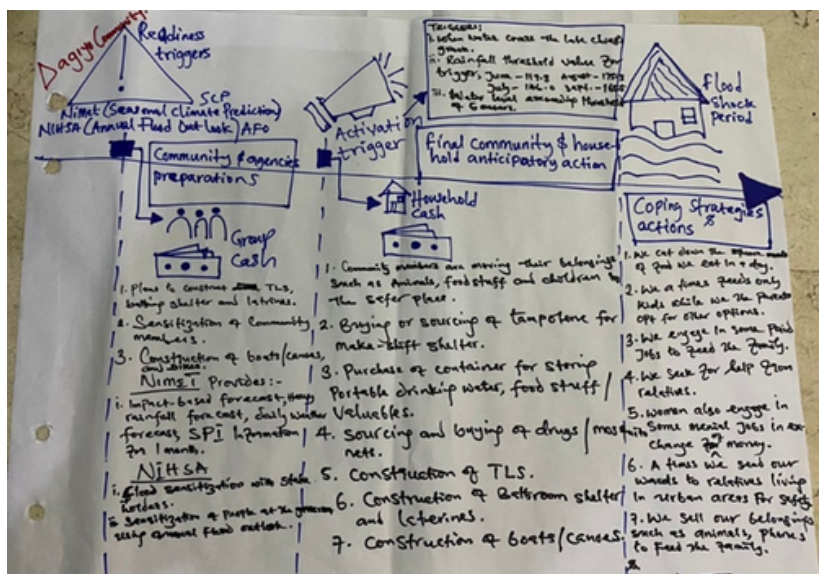 Dagiyo Community.
Readiness
triggers
SCP
Nimet (Seasonal climate Prediction)
NIHSA (Annual Flood Outlook) AFO
Community & agencies
preparations
Group
Cash
1. Plans to construct TLS,
bathing shelter and latrines.
2. Sensitization of Community
members.
3. Construction of boats/canoes,
Nimet Provides:-
i. Impact-based forecast,
rainfall forecast, daily weather
forecast, SPI Information
for 1 month.
NIHSA
i. Flood sensitization with Stake
holders.
ii. Sensitization of people at the
using annual flood outlook.
Activation
trigger
TRIGGERS:
i. When water cross the
ii. Rainfall Threshold value for
trigger, June - 119.8 August -
July - Sept. -
iii. Water level exceeding threshold
of Sensors.
Final Community & house
hold anticipatory action
Household
Cash
1. Community members are moving their belongings
such as Animals, food stuff and children to
the safer place.
2. Buying or sourcing of tampoline for
make-shift shelter.
3. Purchase of container for storing
Portable drinking water, food stuff/
Valuables.
4. Sourcing and buying of drugs/mosquito
nets.
5. Construction of TLS.
6. Construction of Bathroom shelter
and Laterines.
7. Construction of boats/canoes.
Flood
Shock
period
Coping strategies
&
actions
1. We cut down the
of food we eat in a day.
2. We a times feeds only
kids while we the parents
opt for other options.
3. We engage in some paid
Jobs to feed the family.
4. We seek for help from
relatives.
5. Women also engage in
Some menial jobs in ex
change for money.
6. A times we send our
wards to relatives living
in urban areas for safety
7. We sell our belongings
such as animals, phones
to feed the family.